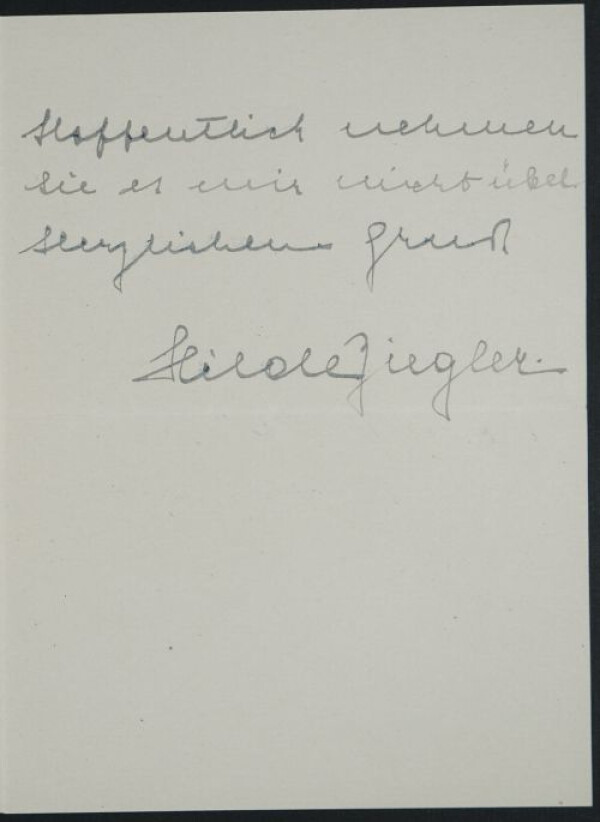 Hoffentlich nehmen
Sie es mir nicht übel
Herzlichen Gruß
Hilde Ziegler.